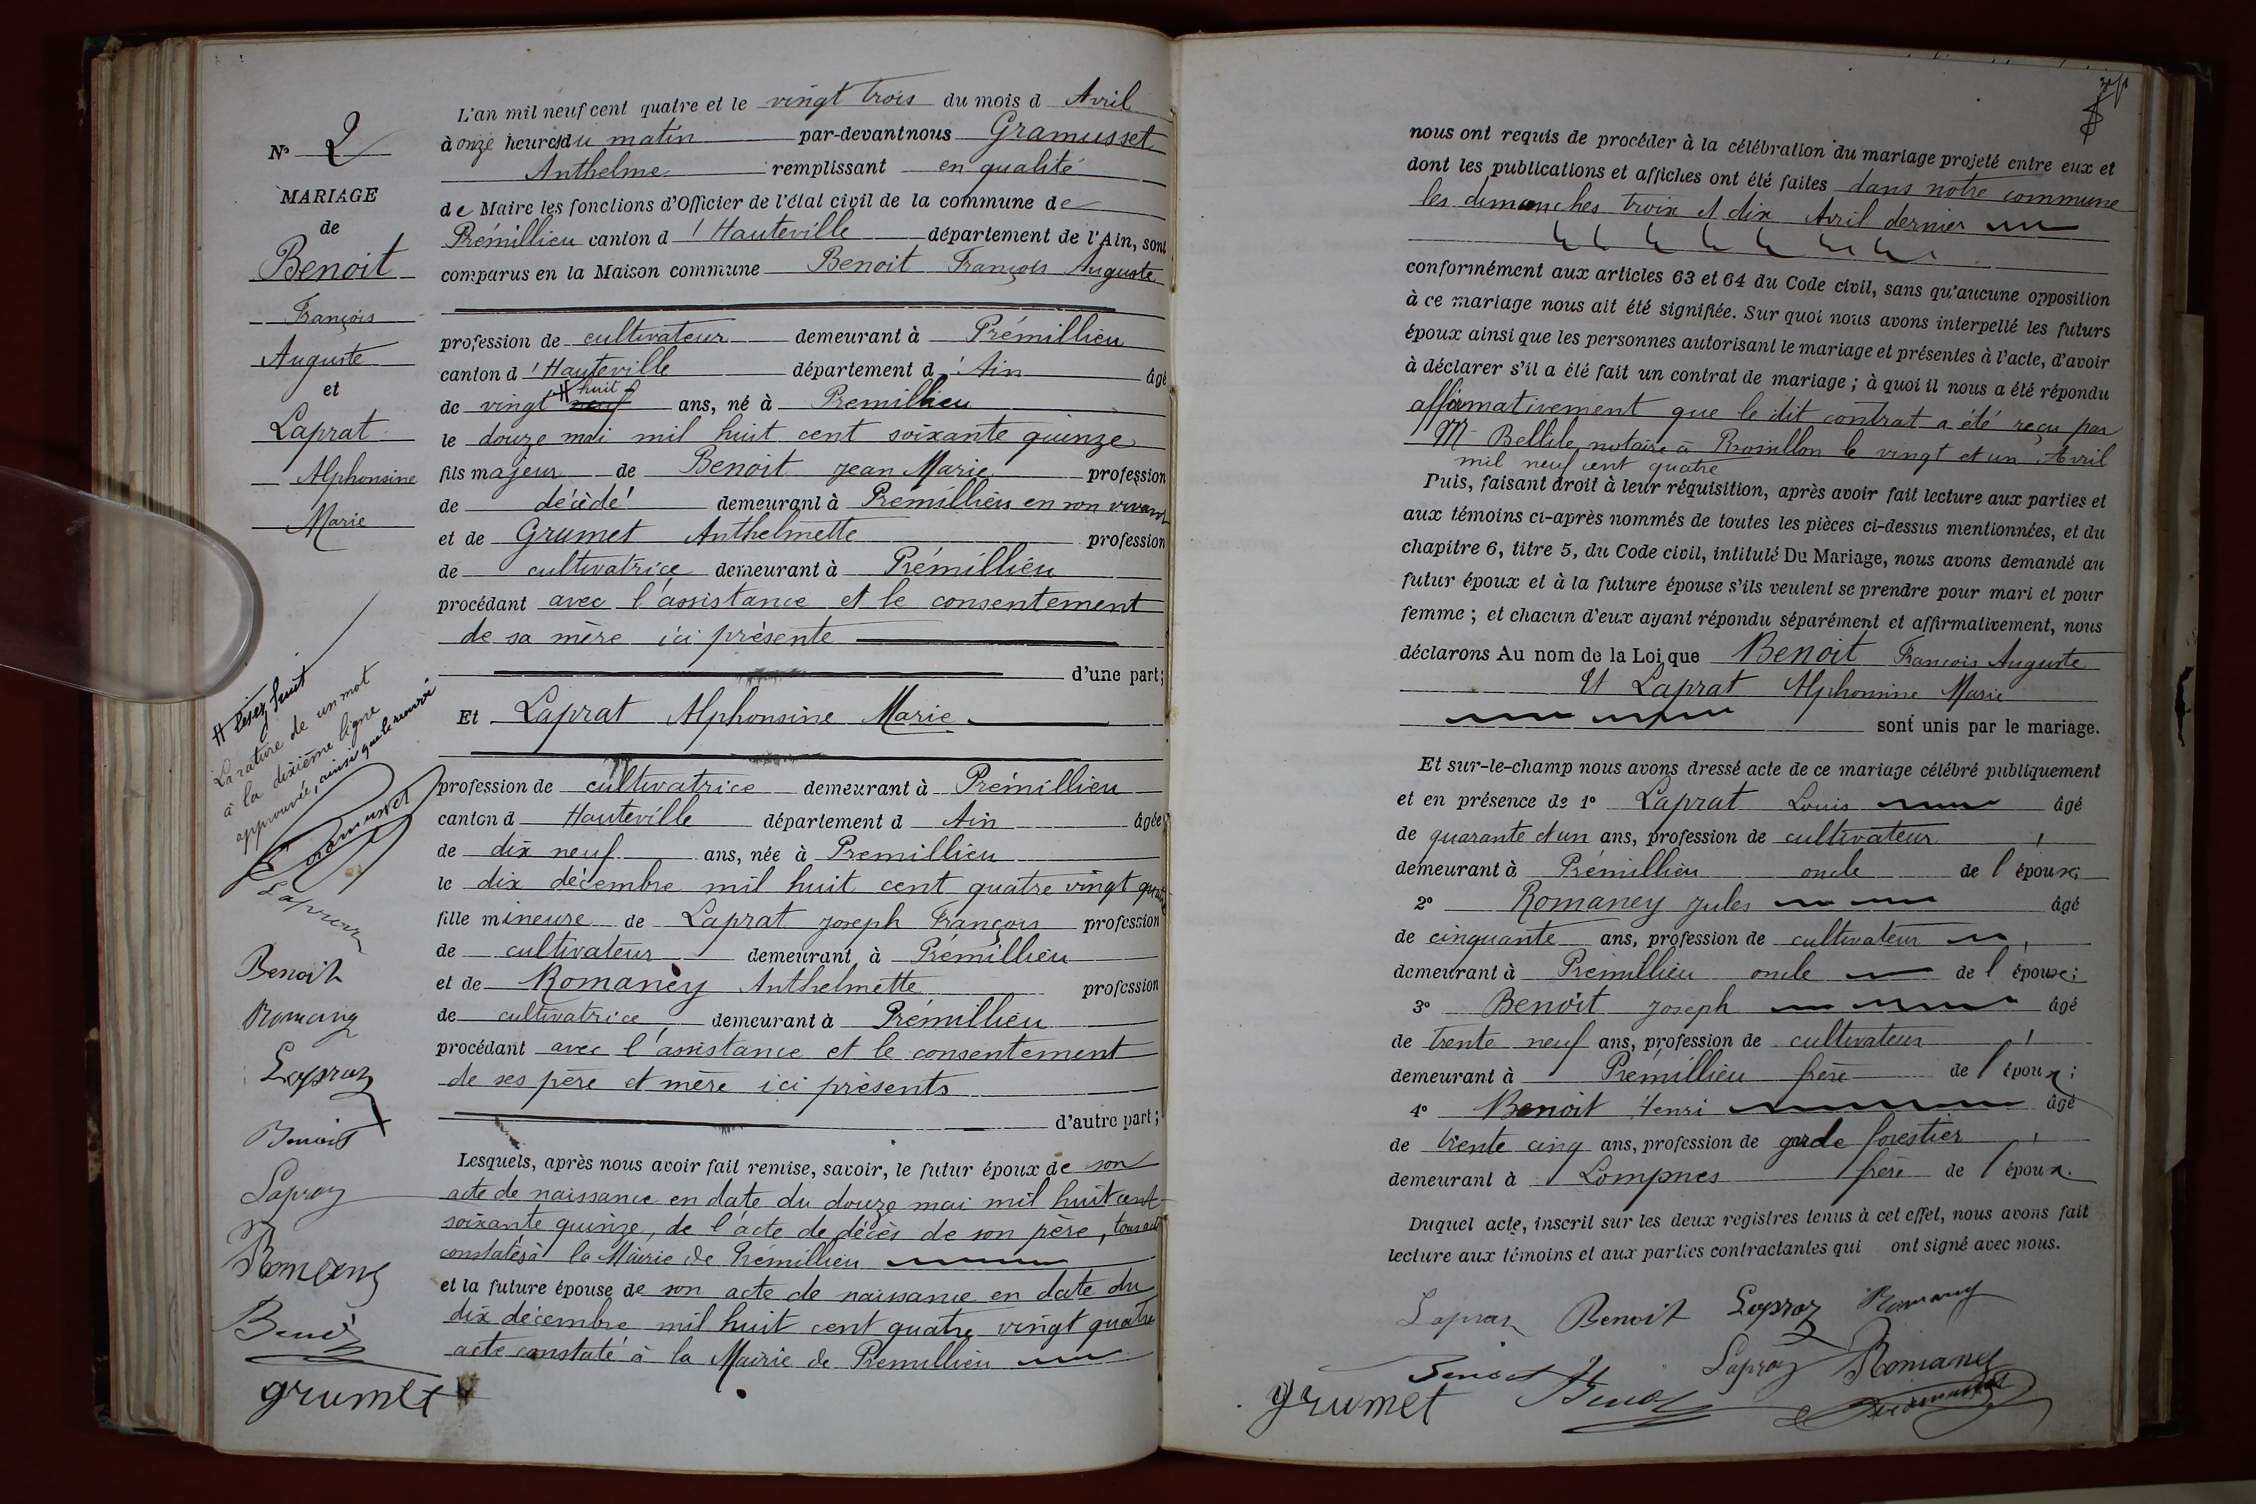 N° 2
MARIAGE
de
Benoit
François
Auguste
et
Laprat
Alphonsine
Marie
# lisez huit
La rature de un mot
à la dixième ligne
approuvée, ainsi que le renvoi
Gramusset
Benoit
Romaney
Benoit
Romaney
Benoit
grumet
L'an mil neuf cent quatre et le vingt trois du mois d Avril
à onze heures du matin par-devant nous Gramusset
Anthelme remplissant en qualité
de Maire les fonctions d'Officier de l'état civil de la commune de
Prémillieu canton d'Hauteville département de l'Ain, sont
comparus en la Maison commune Benoit François Auguste
profession de cultivateur demeurant à Prémillieu
canton d'Hauteville département d'Ain âgé
de vingt # huit neuf ans, né à Premillieu
le douze mai mil huit cent soixante quinze
fils majeur de Benoit Jean Marie profession
de décèdé demeurant à Prémillieu en son vivant
et de Grumet Anthelmette profession
de cultivatrice demeurant à Prémillieu
procédant avec l'assistance et le consentement
de sa mère ici présente
d'une part;
Et Laprat Alphonsine Marie
profession de cultivatrice demeurant à Prémillieu
canton d Hauteville département d Ain âgée
de dix neuf ans, née à Premillieu
le dix décembre mil huit cent quatre vingt quatre
fille mineure de Laprat Joseph François profession
de cultivateur demeurant à Prémillieu
et de Romaney Anthelmette profession
de cultivatrice demeurant à Prémillieu
procédant avec l'assistance et le consentement
de ses père et mère ici présents
d'autre part;
Lesquels, après nous avoir fait remise, savoir, le futur époux de son
acte de naissance en date du douze mai mil huit cent
soixante quinze, de l'acte de décès de son père, tous
constatés à la Mairie de Prémillieu
et la future épouse de son acte de naissance en date du
dix décembre mil huit cent quatre vingt quatre
acte constaté à la Mairie de Premillieu
nous ont requis de procéder à la célébration du mariage projeté entre eux et
dont les publications et affiches ont été faites dans notre commune
les dimanches trois et dix Avril dernier
conformément aux articles 63 et 64 du Code civil, sans qu'aucune opposition
à ce mariage nous ait été signifiée. Sur quoi nous avons interpellé les futurs
époux ainsi que les personnes autorisant le mariage et présentes à l'acte, d'avoir
à déclarer s'il a été fait un contrat de mariage; à quoi il nous a été répondu
affirmativement que le dit contrat a été reçu par
M Bellile notaire à Rossillon le vingt et un Avril
mil neuf cent quatre
Puis, faisant droit à leur réquisition, après avoir fait lecture aux parties et
aux témoins ci-après nommés de toutes les pièces ci-dessus mentionnées, et du
chapitre 6, titre 5, du Code civil, intitulé Du Mariage, nous avons demandé au
futur époux et à la future épouse s'ils veulent se prendre pour mari et pour
femme; et chacun d'eux ayant répondu séparément et affirmativement, nous
déclarons Au nom de la Loi que Benoit François Auguste
Et Laprat Alphonsine Marie
sont unis par le mariage.
Et sur-le-champ nous avons dressé acte de ce mariage célébré publiquement
et en présence de 1° Laprat Louis âgé
de quarante et un ans, profession de cultivateur,
demeurant à Prémillieu oncle de l'époux;
2° Romaney Jules âgé
de cinquante ans, profession de cultivateur,
demeurant à Prémillieu oncle de l'épouse;
3° Benoit Joseph âgé
de trente neuf ans, profession de cultivateur,
demeurant à Prémillieu frère de l'époux;
4° Benoit Henri âgé
de trente cinq ans, profession de garde forestier,
demeurant à Lompnes frère de l'époux.
Duquel acte, inscrit sur les deux registres tenus à cet effet, nous avons fait
lecture aux témoins et aux parties contractantes qui ont signé avec nous.
Benoit Romaney
Benoit Romaney
grumet Gramusset